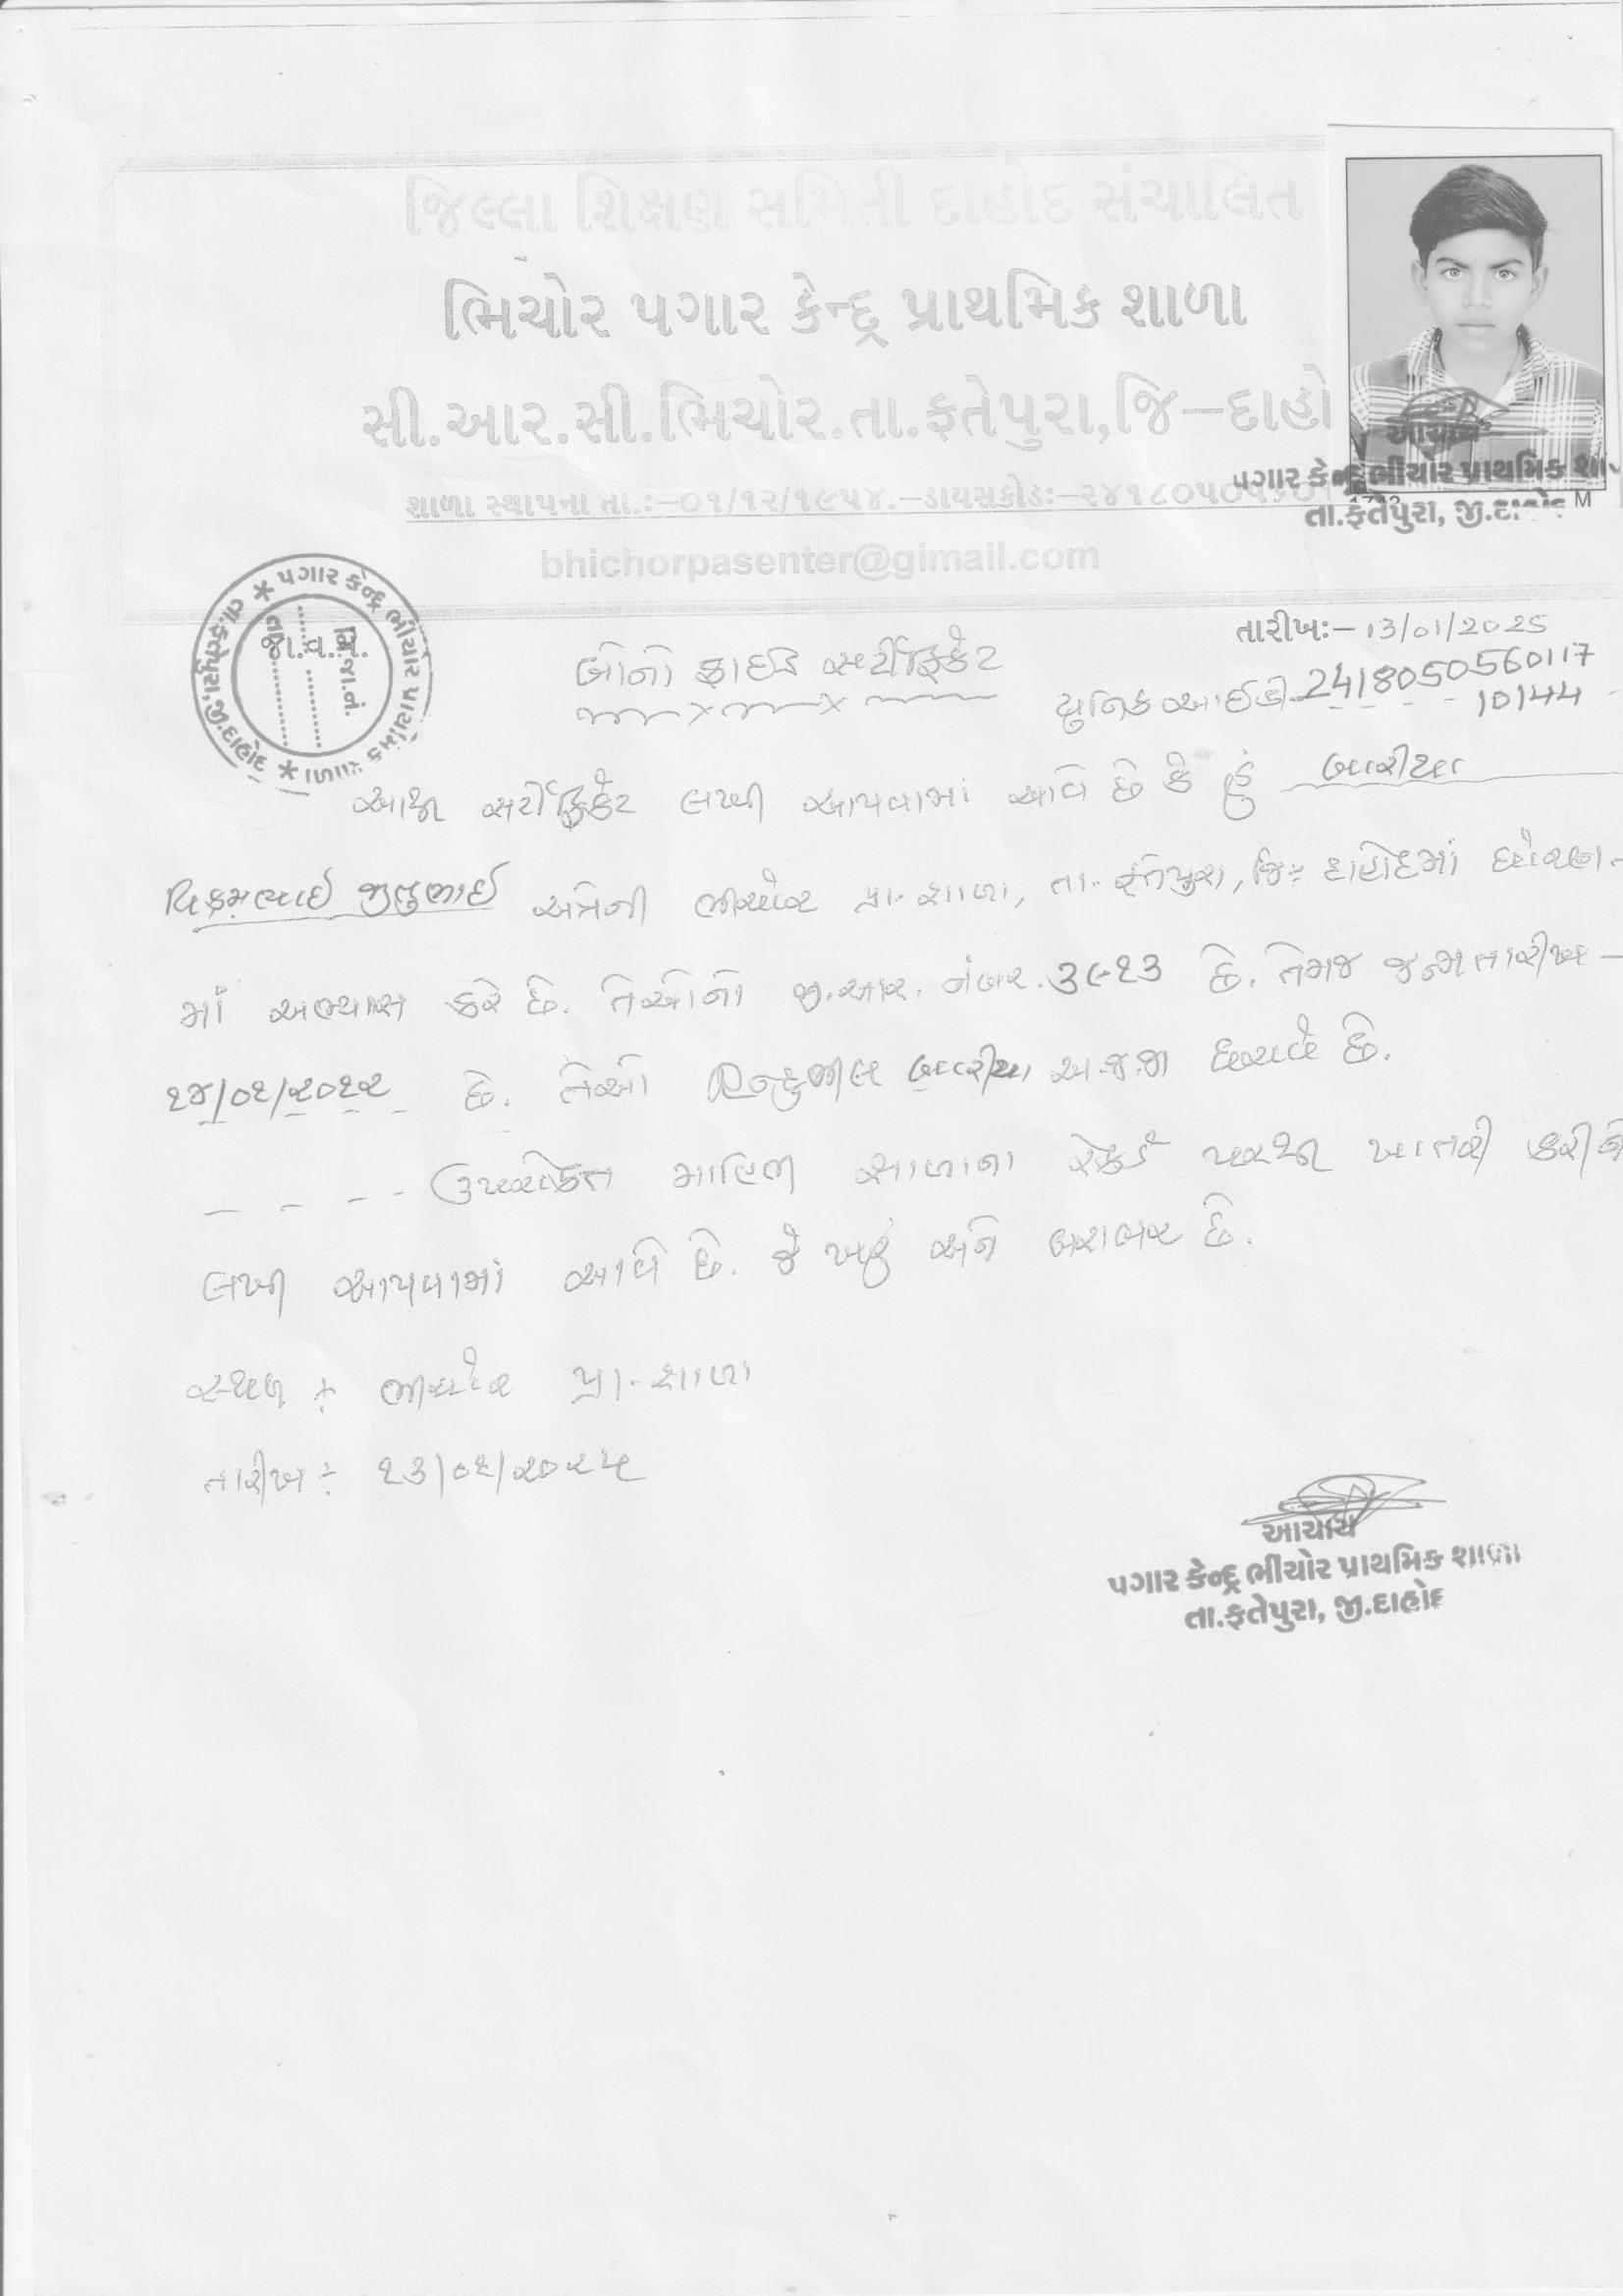 જિલ્લા શિક્ષણ સમિતી દાહોદ સંચાલિત
ભિચોર પગાર કેન્દ્ર પ્રાથમિક શાળા
સી.આર.સી.ભિચોર.તા.ફતેપુરા,જિ–દાહો
શાળા સ્થાપના તા.:–૦૧/૧૨/૧૯૫૪.–ડાયસકોડઃ–૨૪૧૮૦૫૦૫
bhichorpasenter@gimail.com
આચાર્ય
પગાર કેન્દ્ર ભીંચોર પ્રાથમિક શા
તા.ફતેપુરા, જી.દાહોદ M
પગાર કેન્દ્ર ભીંચોર પ્રાથમિક શાળા * તા.ફતેપુરા,જી.દાહોદ *
જા.વ.નં.
તારીખઃ– 13/01/2025
બોનો ફાઇડ સર્ટીફીકેટ
યુનિક આઇડી 241805050560117
10144
આથી સર્ટીફીકેટ લખી આપવામાં આવે છે કે હું બારીયા
વિક્રમભાઇ જીતુભાઇ અત્રેની ભીચોર પ્રા. શાળા, તા. ફતેપુરા, જિઃ દાહોદમાં ધોરણ-
માં અભ્યાસ કરે છે. તેઓનો જી.આર. નંબર. ૩૯૧૩ છે. તેમજ જન્મ તારીખ –
૧૪/૦૧/૨૦૧૨ છે. તેઓ હિન્દુ બારીયા અ.જ.જા ધરાવે છે.
– – – – ઉપરોક્ત માહિતી શાળાના રેકર્ડ પરથી ખાતરી કરીને
લખી આપવામાં આવે છે. જે ખરૂં અને બરાબર છે.
સ્થળ ઃ ભીચોર પ્રા. શાળા
તારીખ ઃ ૧૩/૦૧/૨૦૨૫
આચાર્ય
પગાર કેન્દ્ર ભીંચોર પ્રાથમિક શાળા
તા.ફતેપુરા, જી.દાહોદ